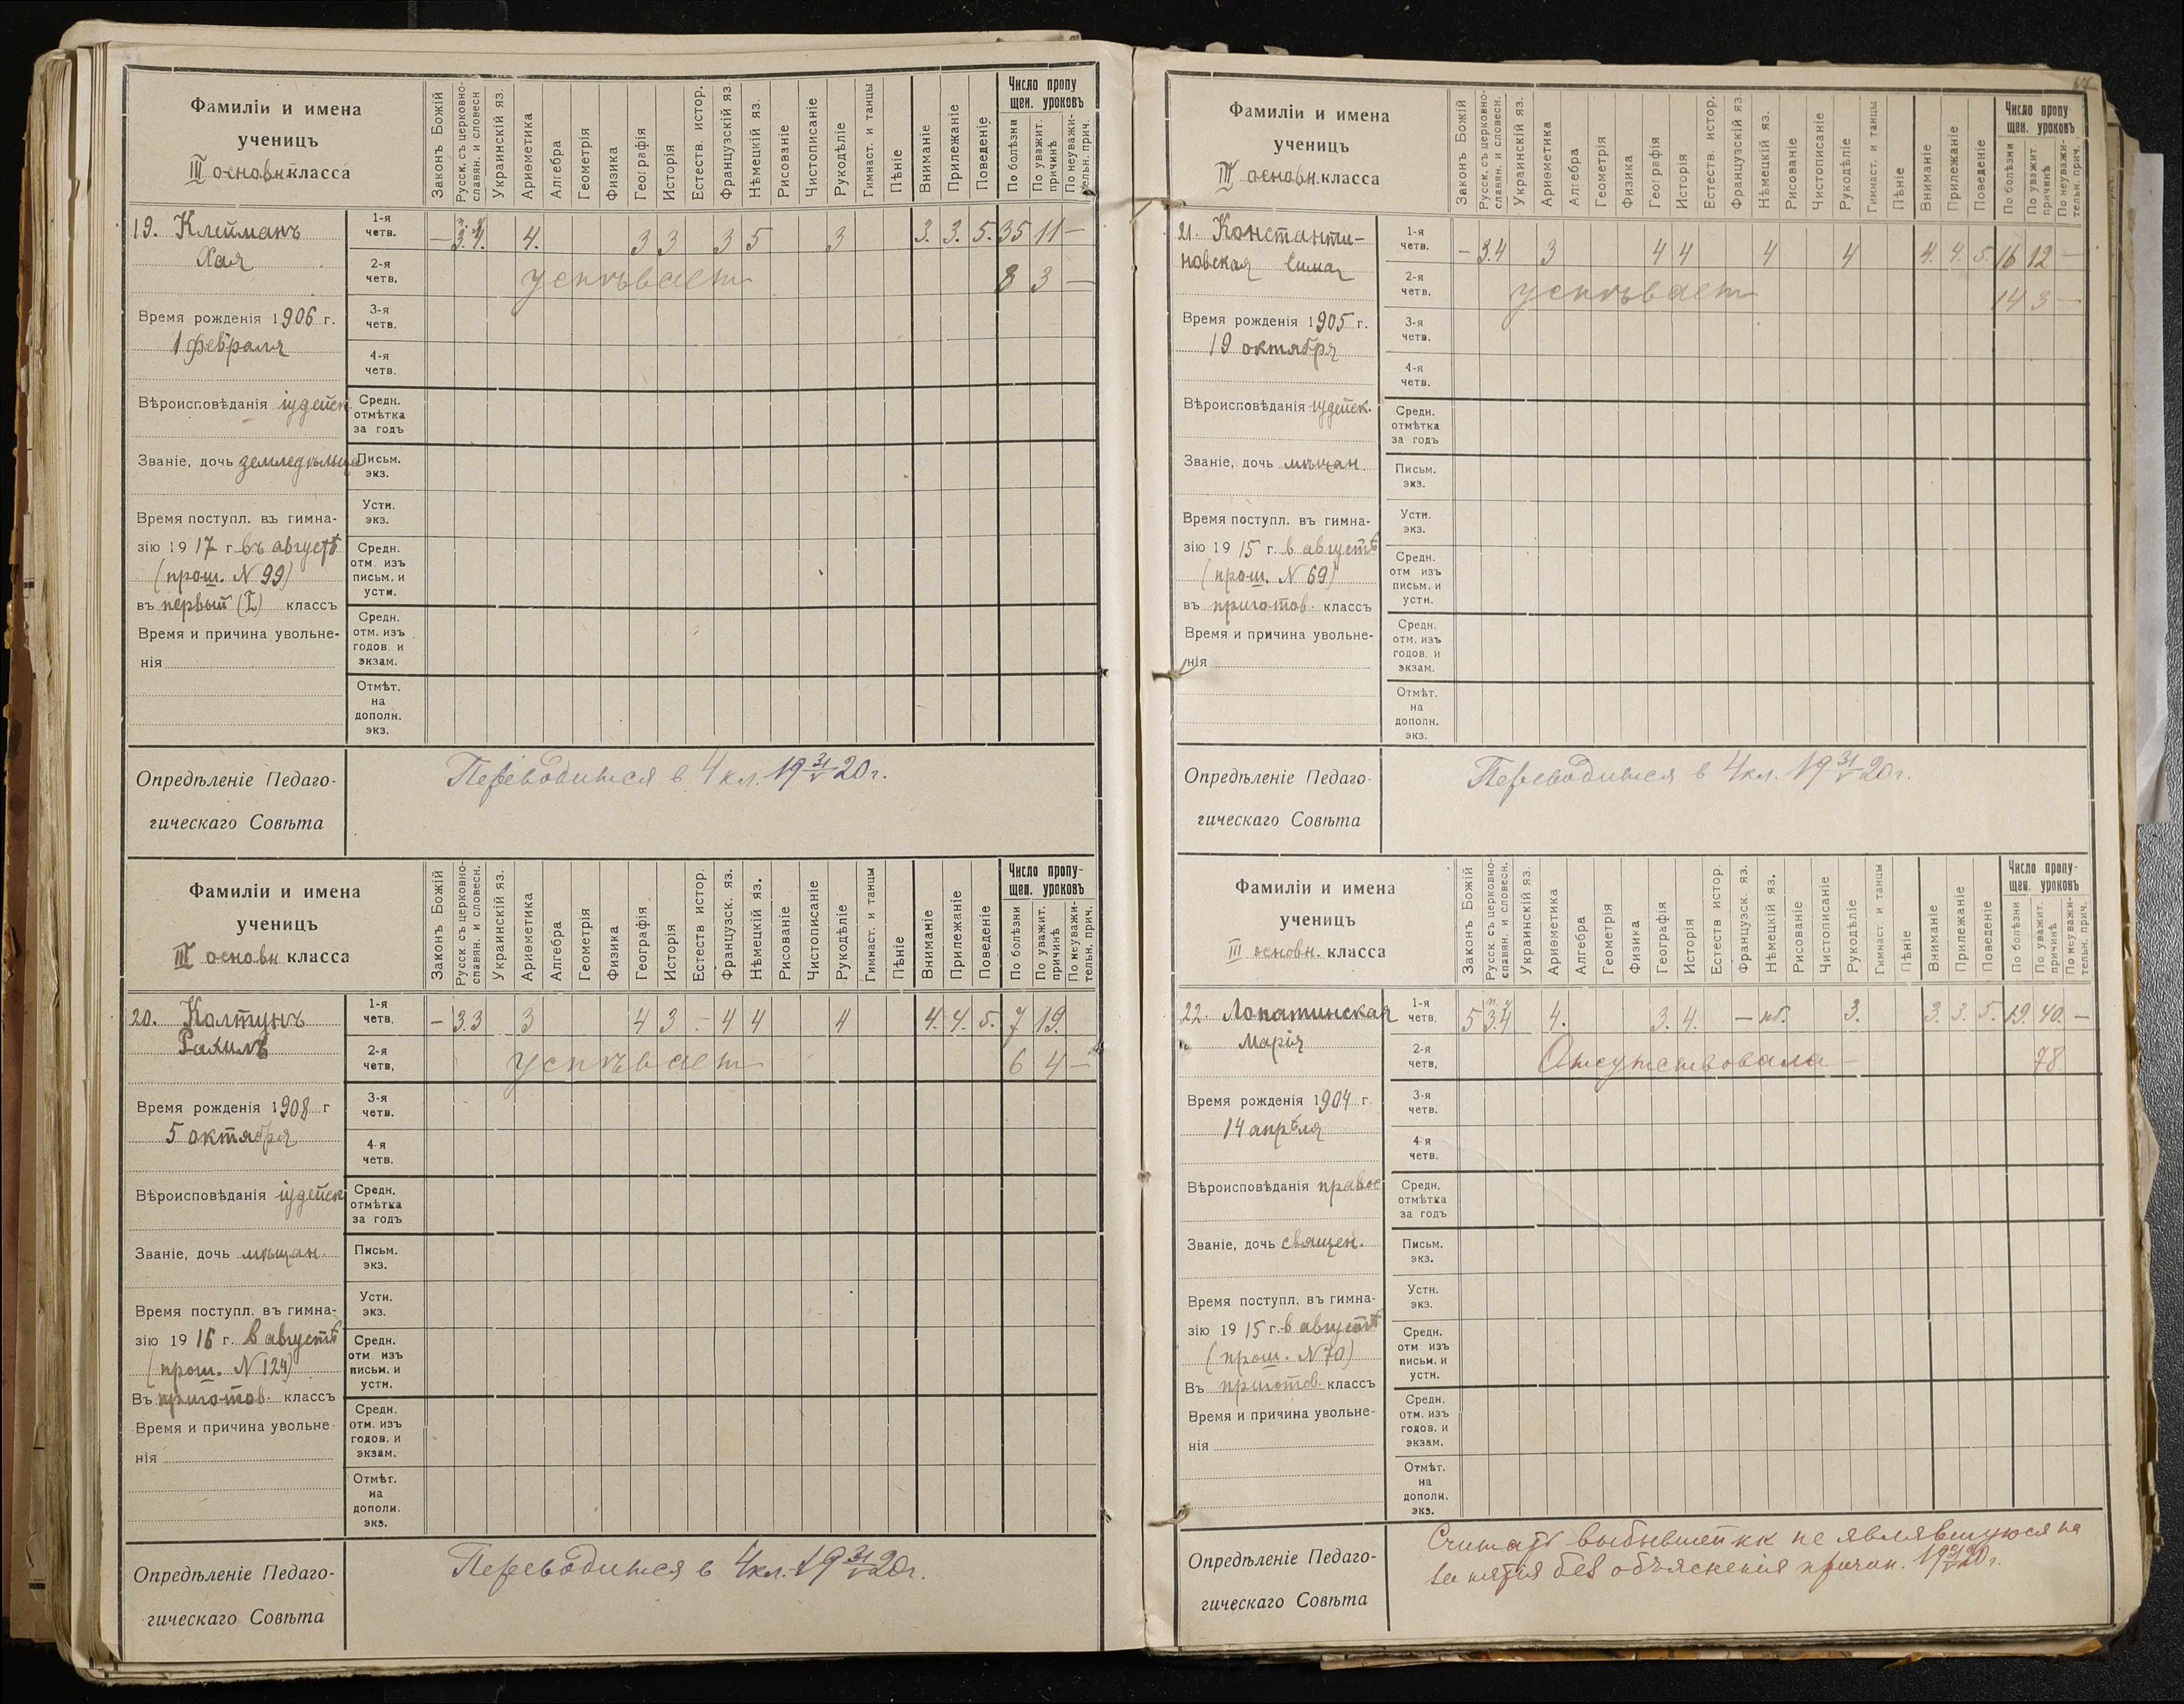 Фамиліи и имена
ученицъ
III основн. класса
Законъ Божій
Русск. съ церковно-
славян. и словесн
Украинскій яз.
Ариѳметика
Алгебра
Геометрія
Физика
Географія
Исторія
Естеств. истор.
Французскій яз.
Нѣмецкій яз.
Рисованіе
Чистописаніе
Рукодѣліе
Гимнаст. и танцы
Пѣніе
Вниманіе
Прилежаніе
Поведеніе
Число пропу
щен. уроковъ
По болѣзни
По уважит.
причинѣ
По неуважи-
тельн. прич.
19. Клейманъ
Хая
1-я
четв. – 3. 4. 4. 3 3 3 5 3 3. 3. 5. 35 11 –
2-я
четв. успѣвает 8 3 –
Время рожденія 1906 г.
1 февраля
3-я
четв.
4-я
четв.
Вѣроисповѣданія іудейск.
Средн.
отмѣтка
за годъ
Званіе, дочь земледѣльца
Письм.
экз.
Устн.
экз.
Время поступл. въ гимна-
зію 1917 г. въ августѣ
(прош. N 99)
въ первый (I) классъ
Средн.
отм. изъ
письм. и
устн.
Время и причина увольне-
нія
Средн.
отм. изъ
годов. и
экзам.
Отмѣт.
на
дополн.
экз.
Опредѣленіе Педаго-
гическаго Совѣта
Переводится в 4 кл. 19 31/V 20 г.
Фамиліи и имена
ученицъ
III основн класса
Законъ Божій
Русск. съ церковно-
славян. и словесн.
Украинскій яз.
Ариѳметика
Алгебра
Геометрія
Физика
Географія
Исторія
Естеств истор.
Французск. яз.
Нѣмецкій яз.
Рисованіе
Чистописаніе
Рукодѣліе
Гимнаст. и танцы
Пѣніе
Вниманіе
Прилежаніе
Поведеніе
Число пропу-
щен. уроковъ
По болѣзни
По уважит.
причинѣ
По неуважи-
тельн. прич.
20. Колтунъ
Рахиль
1-я
четв. – 3 3 3 4 3 – 4 4 4 4. 4. 5. 7 19.
2-я
четв. успѣвает 6 4 –
Время рожденія 1908 г
5 октября
3-я
четв.
4-я
четв.
Вѣроисповѣданія іудейск
Средн.
отмѣтка
за годъ
Званіе, дочь мѣщан.
Письм.
экз.
Устн.
экз.
Время поступл. въ гимна-
зію 1916 г. в августѣ
(прош. N 124)
Въ приготов. классъ
Средн.
отм изъ
письм. и
устн.
Время и причина увольне-
нія
Средн.
отм. изъ
годов. и
экзам.
Отмѣт.
на
дополн.
экз.
Опредѣленіе Педаго-
гическаго Совѣта
Переводится в 4 кл. 19 31/V 20 г.
Фамиліи и имена
ученицъ
III основн. класса
Законъ Божій
Русск. съ церковно-
славян. и словесн.
Украинскій яз.
Ариѳметика
Алгебра
Геометрія
Физика
Географія
Исторія
Естеств. истор.
Французскій яз.
Нѣмецкій яз.
Рисованіе
Чистописаніе
Рукодѣліе
Гимнаст. и танцы
Пѣніе
Вниманіе
Прилежаніе
Поведеніе
Число пропу-
щен. уроковъ
По болѣзни
По уважит
причинѣ
По неуважи-
тельн. прич.
21. Константи-
новская Сима
1-я
четв. – 3. 4 3 4 4 4 4 4. 4. 5. 16 12 –
2-я
четв. успѣвает 14 3 –
Время рожденія 1905 г.
19 октября
3-я
четв.
4-я
четв.
Вѣроисповѣданія іудейск.
Средн.
отмѣтка
за годъ
Званіе, дочь мѣщан.
Письм.
экз.
Устн.
экз.
Время поступл. въ гимна-
зію 1915 г. в августѣ
(прош. N 69)
въ приготов. классъ
Средн.
отм изъ
письм. и
устн.
Время и причина увольне-
нія
Средн.
отм. изъ
годов. и
экзам.
Отмѣт.
на
дополн.
экз.
Опредѣленіе Педаго-
гическаго Совѣта
Переводится в 4 кл. 19 31/V 20 г.
Фамиліи и имена
ученицъ
III основн. класса
Законъ Божій
Русск. съ церковно-
славян. и словесн.
Украинскій яз.
Ариѳметика
Алгебра
Геометрія
Физика
Географія
Исторія
Естеств истор.
Французск. яз.
Нѣмецкій яз.
Рисованіе
Чистописаніе
Рукодѣліе
Гимнаст. и танцы
Пѣніе
Вниманіе
Прилежаніе
Поведеніе
Число пропу-
щен. уроковъ
По болѣзни
По уважит.
причинѣ
По неуважи-
тельн. прич.
22. Лопатинская
Марія
1-я
четв. 5 3 4 4. 3. 4. – нб. 3. 3. 3. 5. 19. 40. –
2-я
четв. Отсутствовала – 78.
Время рожденія 1904 г.
14 апрѣля
3-я
четв.
4-я
четв.
Вѣроисповѣданія правос
Средн.
отмѣтка
за годъ
Званіе, дочь священ.
Письм.
экз.
Устн.
экз.
Время поступл. въ гимна-
зію 1915 г. в августѣ
(прош. N 70)
Въ приготов. классъ
Средн.
отм изъ
письм. и
устн.
Время и причина увольне-
нія
Средн.
отм. изъ
годов. и
экзам.
Отмѣт.
на
дополн.
экз.
Опредѣленіе Педаго-
гическаго Совѣта
Считать выбывшей кк не являвшуюся на
занятія без объясненія причин. 19 31/V 20 г.